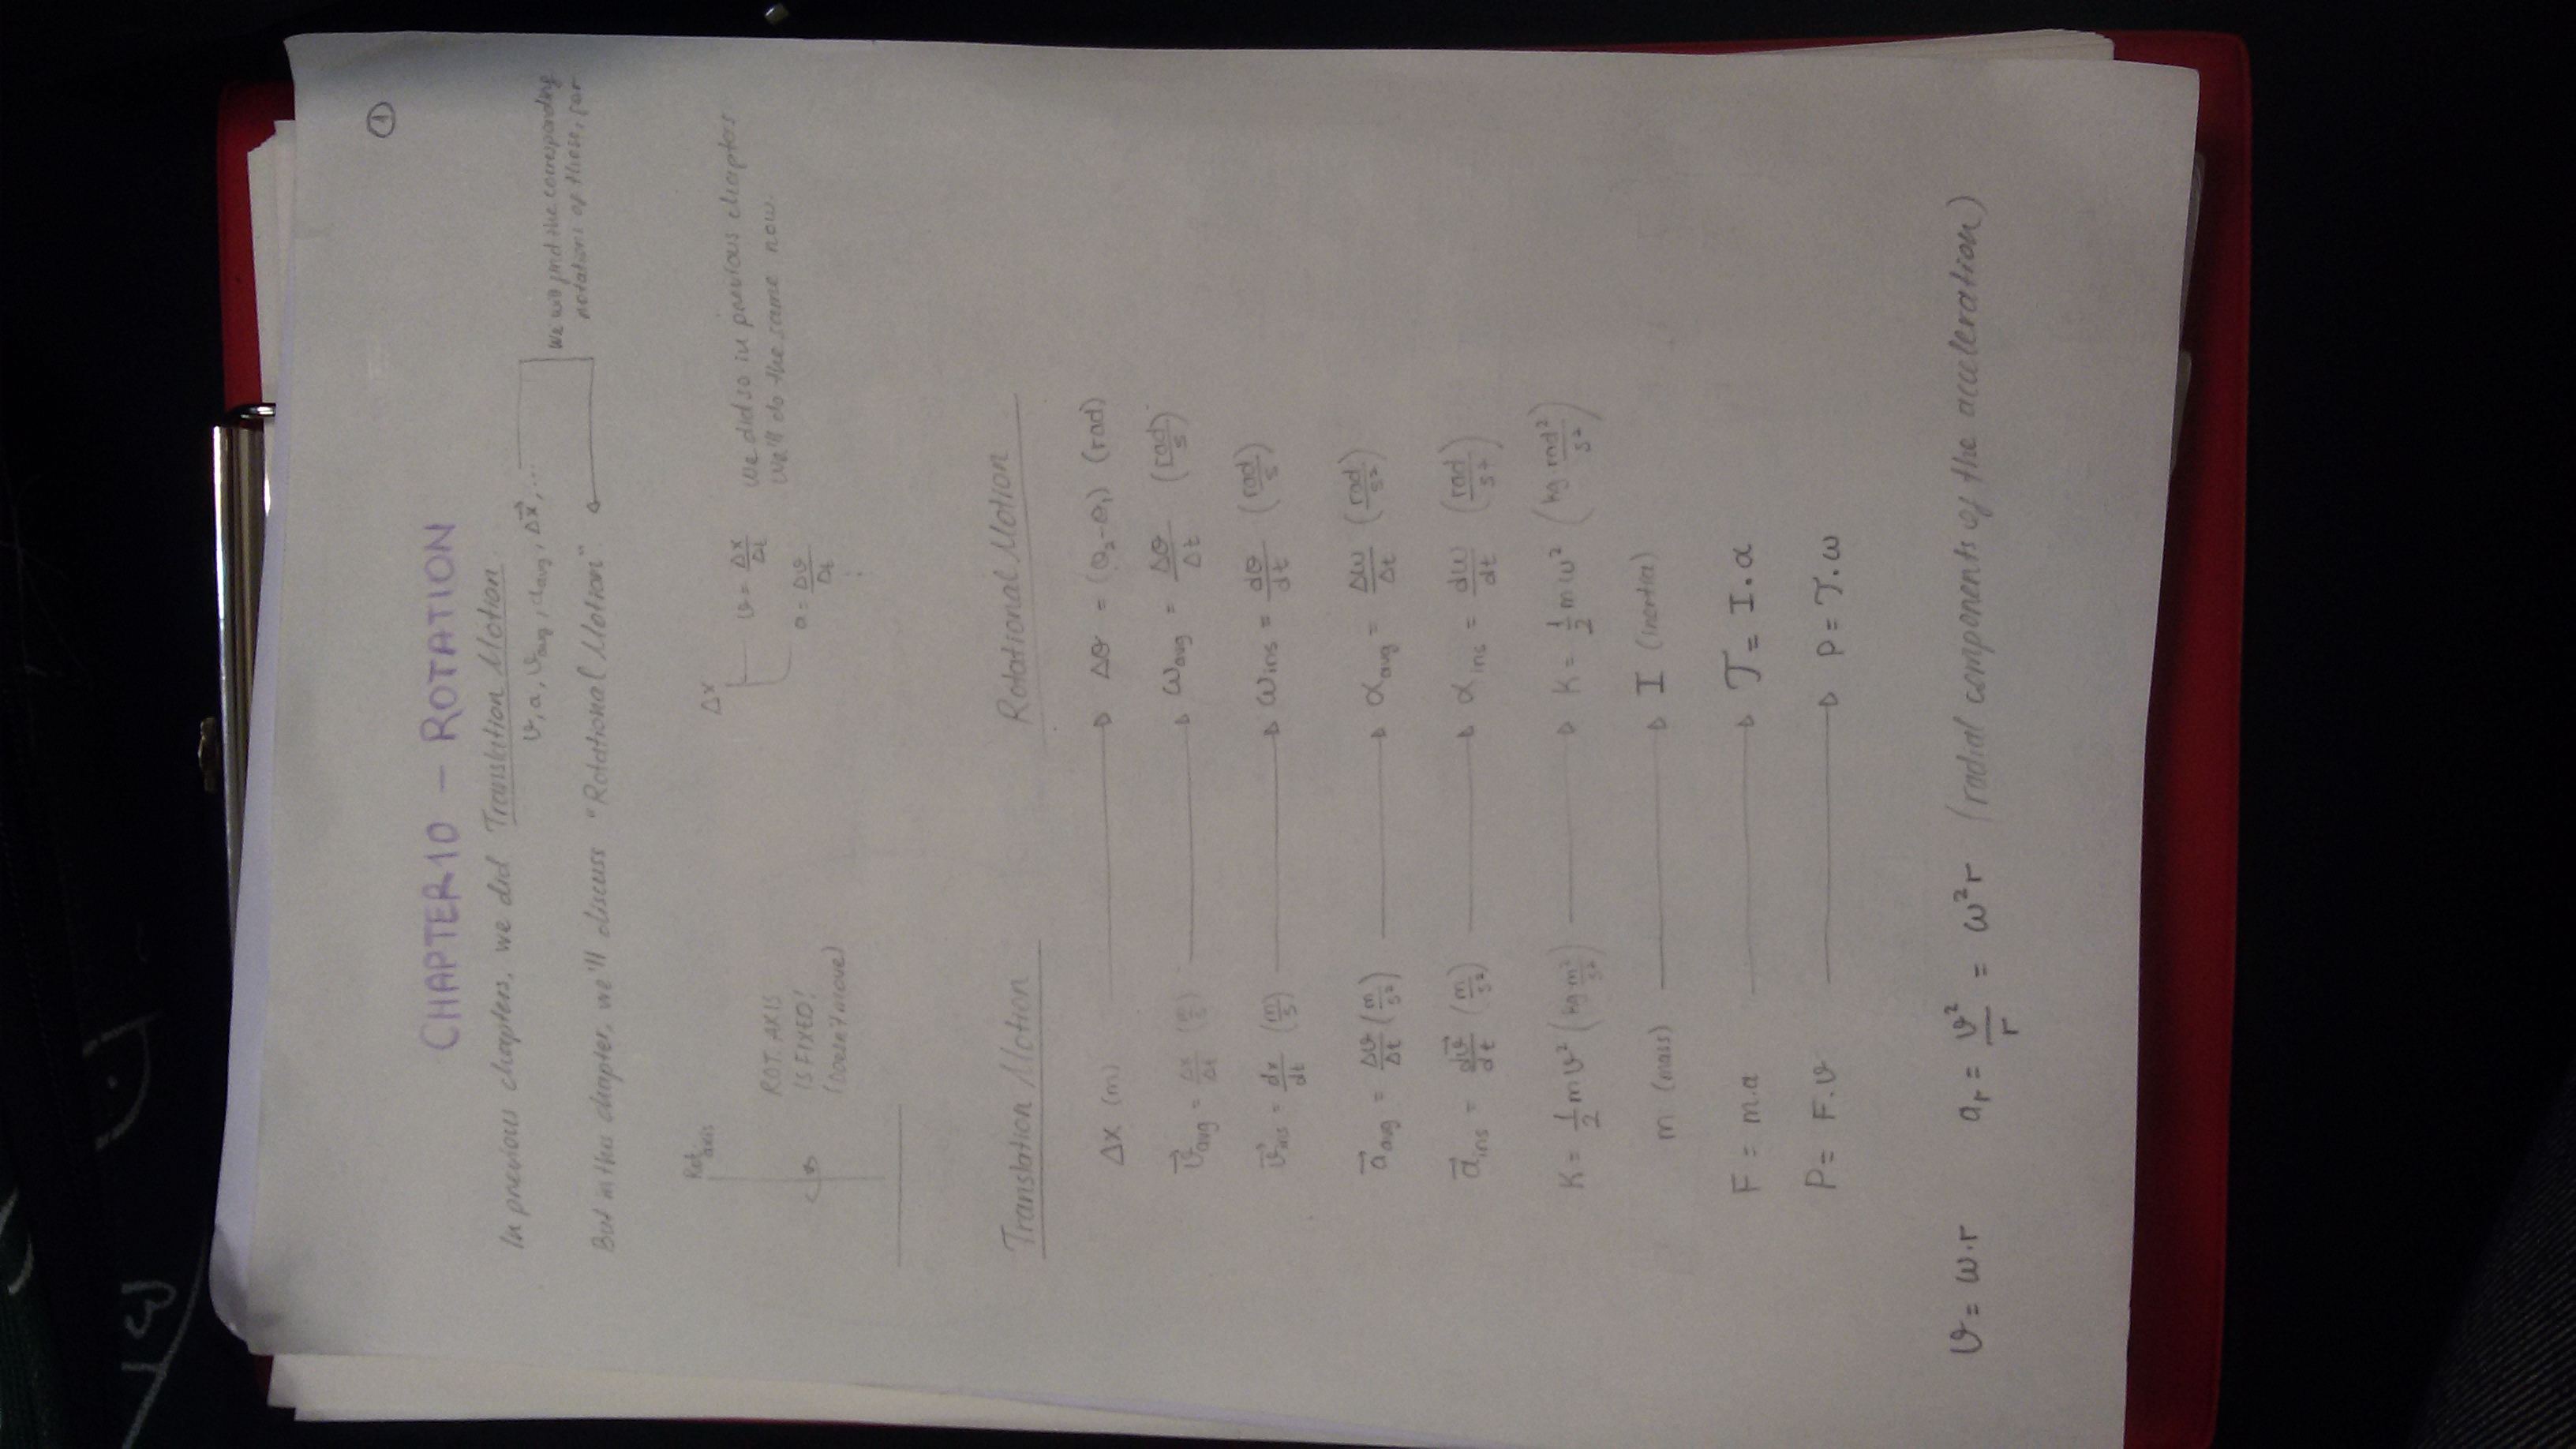 ①
CHAPTER 10 – ROTATION
In previous chapters, we did Translation Motion
v, a, v_avg, a_avg, Δx⃗, ...
We will find the corresponding
notations of these, for
But in this chapter, we'll discuss "Rotational Motion"
Rot axis
ROT. AXIS
IS FIXED!
(Doesn't move)
Δx
v = Δx/Δt
a = Δv/Δt
⋮
We did so in previous chapters
We'll do the same now.
Translation Motion Rotational Motion
Δx (m) → Δθ = (θ₂-θ₁) (rad)
v⃗_avg = Δx/Δt (m/s) → ω_avg = Δθ/Δt (rad/s)
v⃗_ins = dx/dt (m/s) → ω_ins = dθ/dt (rad/s)
a⃗_avg = Δv/Δt (m/s²) → α_avg = Δω/Δt (rad/s²)
a⃗_ins = dv⃗/dt (m/s²) → α_ins = dω/dt (rad/s²)
K = 1/2 mv² (kg·m²/s²) → K = 1/2 mω² (kg·rad²/s²)
m (mass) → I (inertia)
F = m.a → τ = I.α
P = F.v → P = τ.ω
v = ω.r a_r = v²/r = ω²r (radial components of the acceleration)